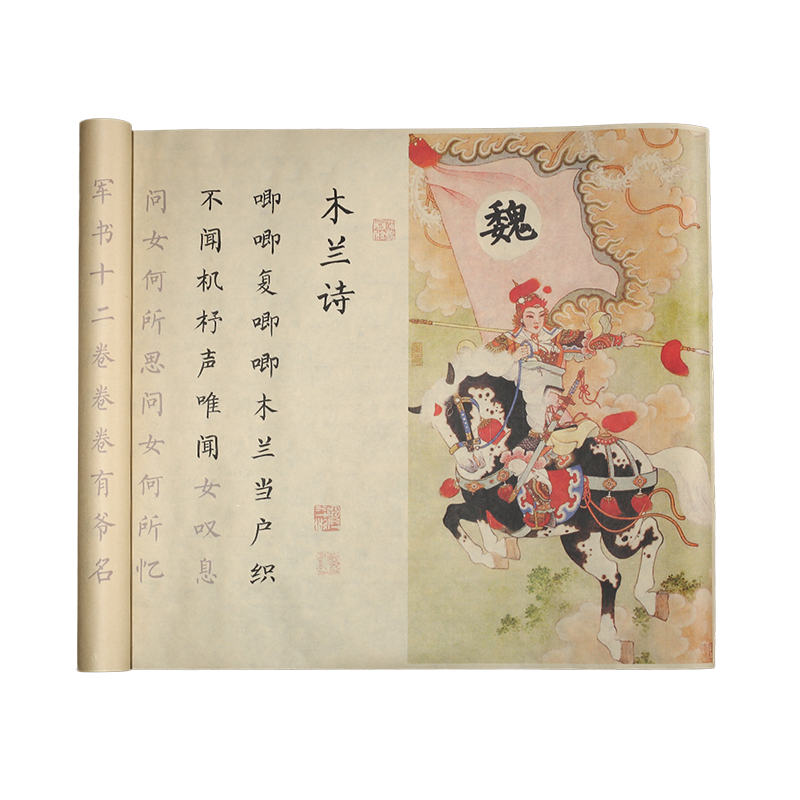 魏
木兰诗
唧唧复唧唧木兰当户织
不闻机杼声唯闻女叹息
问女何所思问女何所忆
军书十二卷卷卷有爷名